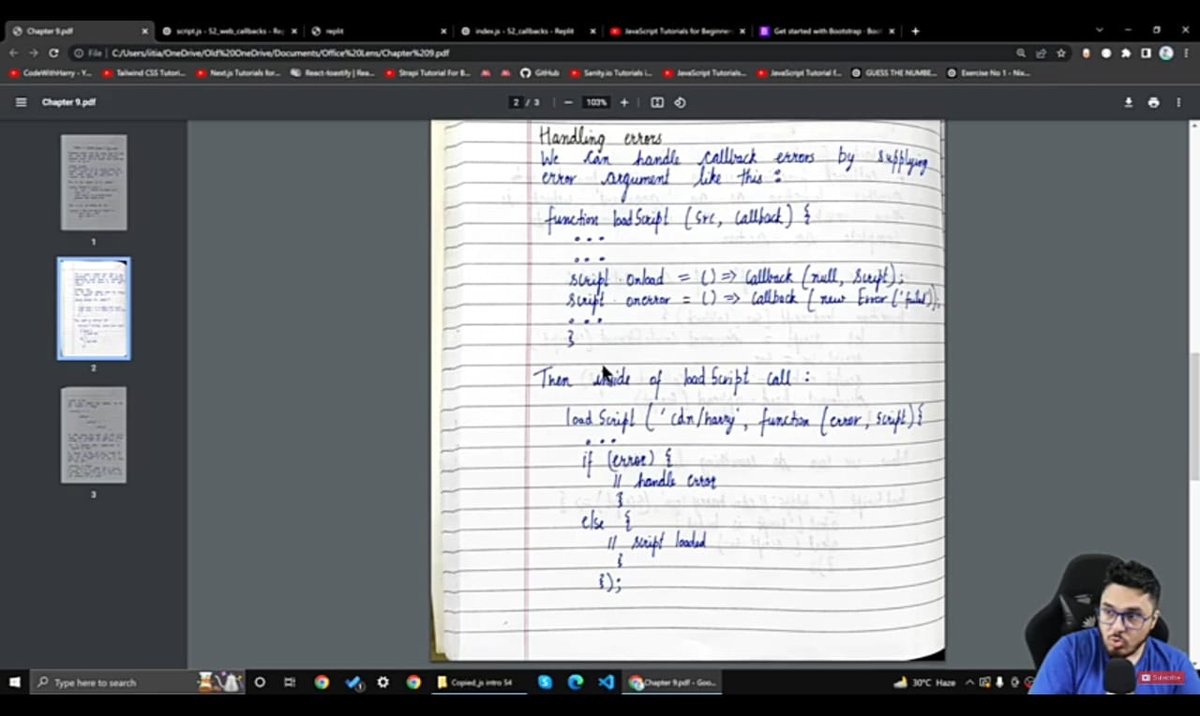 Chapter 9.pdf
script.js - 52_web_callbacks - Re
replit
index.js - 52_callbacks - Replit
JavaScript Tutorials for Beginner
Get started with Bootstrap · Boot
File
C:/Users/litia/OneDrive/Old%20OneDrive/Documents/Office%20Lens/Chapter%209.pdf
CodeWithHarry - Y...
Tailwind CSS Tutori...
Next.js Tutorials for...
React-toastify | Rea...
Strapi Tutorial For B...
GitHub
Sanity.io Tutorials i...
JavaScript Tutorials...
JavaScript Tutorial f...
GUESS THE NUMBE...
Exercise No 1 - Nix...
Chapter 9.pdf
2 / 3
103%
1
2
3
Handling errors
We can handle callback errors by supplying
error argument like this :
function loadScript (src, callback) {
...
...
script onload = () => callback (null, script);
script onerror = () => callback (new Error ('failed'));
...
}
Then inside of loadScript call :
loadScript ('cdn/harry', function (error, script) {
...
if (error) {
// handle error
}
else {
// script loaded
}
});
Subscribe
Type here to search
Copied_js intro 54
Chapter 9.pdf - Goo...
30°C Haze